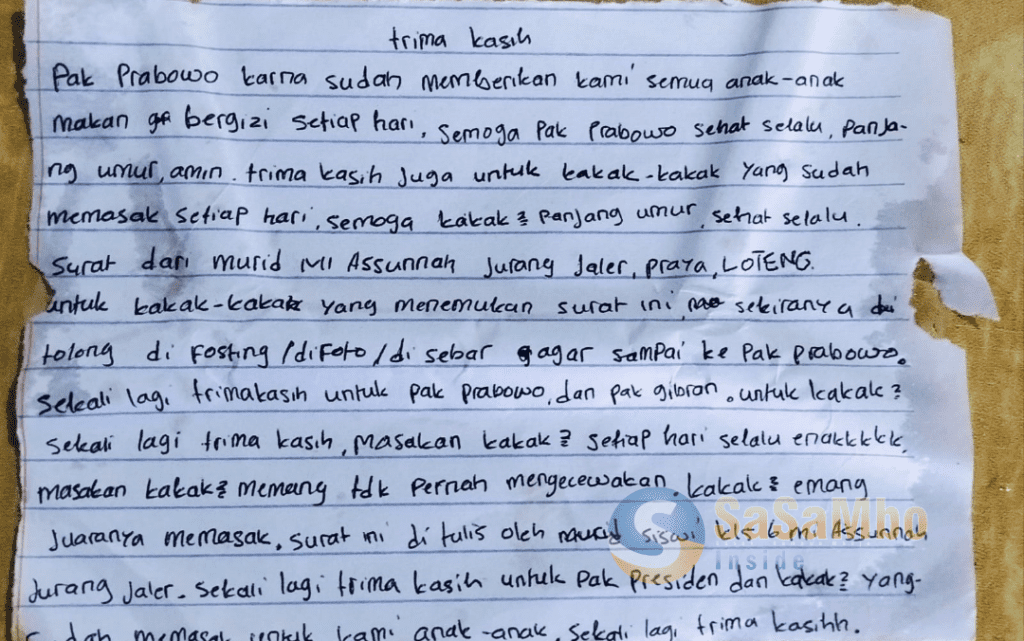 trima kasih
Pak Prabowo karna sudah memberikan kami semua anak-anak
makan bergizi setiap hari, semoga Pak Prabowo sehat selalu, Panja-
ng umur, amin. trima kasih juga untuk kakak-kakak yang sudah
memasak setiap hari, semoga kakak2 panjang umur, sehat selalu.
Surat dari murid MI Assunnah Jurang Jaler, Praya, LOTENG.
untuk kakak-kakak yang menemukan surat ini, sekiranya
tolong di Fosting/diFoto/di sebar agar sampai ke Pak Prabowo.
Sekali lagi trimakasih untuk pak prabowo, dan pak gibran. untuk kakak2
sekali lagi trima kasih, masakan kakak2 setiap hari selalu enakkkkk,
masakan kakak2 memang tdk pernah mengecewakan, kakak2 emang
Juaranya memasak, surat ini di tulis oleh siswi kls 6 mi Assunnah
Jurang Jaler. Sekali lagi trima kasih untuk Pak Presiden dan kakak2 yang-
dah memasak untuk kami anak-anak, Sekali lagi trima kasihh.
SaSaMbo
Inside